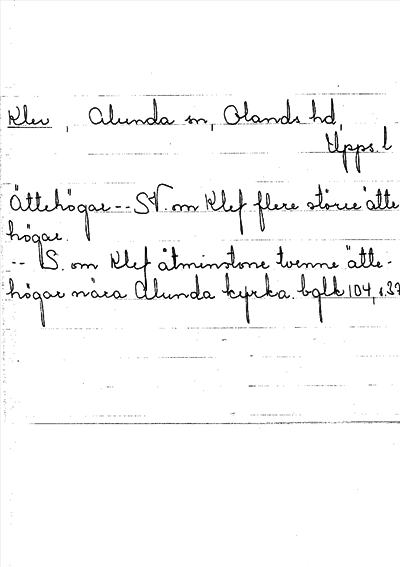 Klev, Alunda sn, Olands hd,
Upps. l
Ättehögar -- SV. om Klef flere större ätte
högar.
-- S. om Klef åtminstone tvenne ätte-
högar nära Alunda kyrka. bglk 104, s. 37